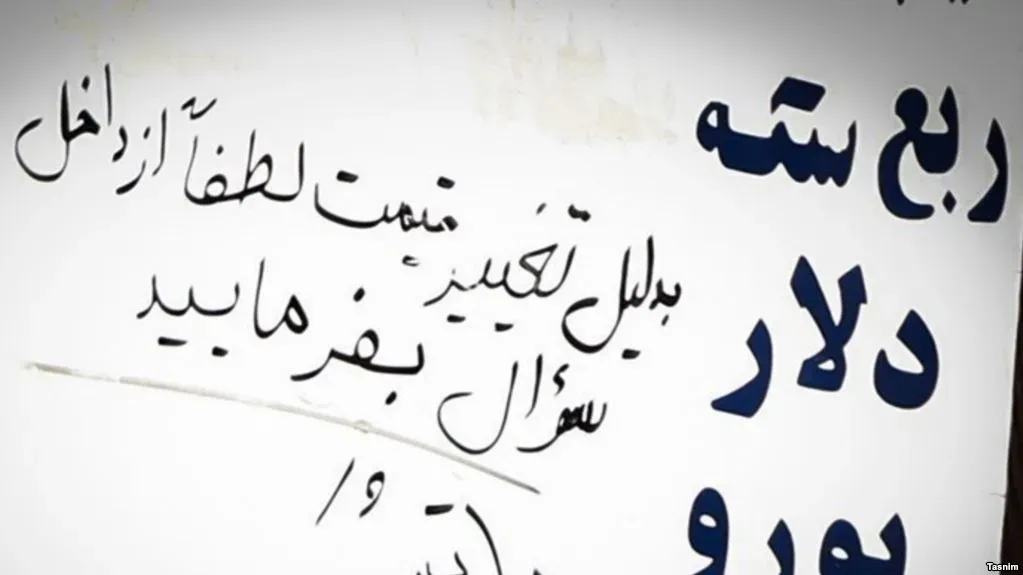 ربع سته
دلار
یورو
بدلیل تغییر قیمت لطفاً از داخل
سؤال بفرمایید
Tasnim